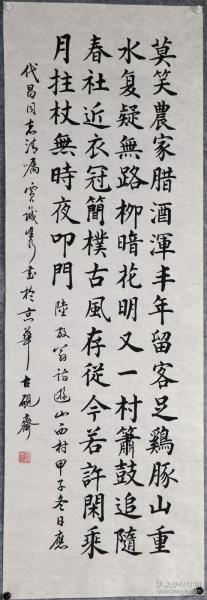 莫笑農家腊酒渾丰年留客足鷄豚山重
水复疑無路柳暗花明又一村簫鼓追隨
春社近衣冠簡樸古風存從今若許閑乘
月拄杖無時夜叩門 陸放翁詩遊山西村甲子冬日應
代昌同志清嘱 賈誠 書於京華古硯齋